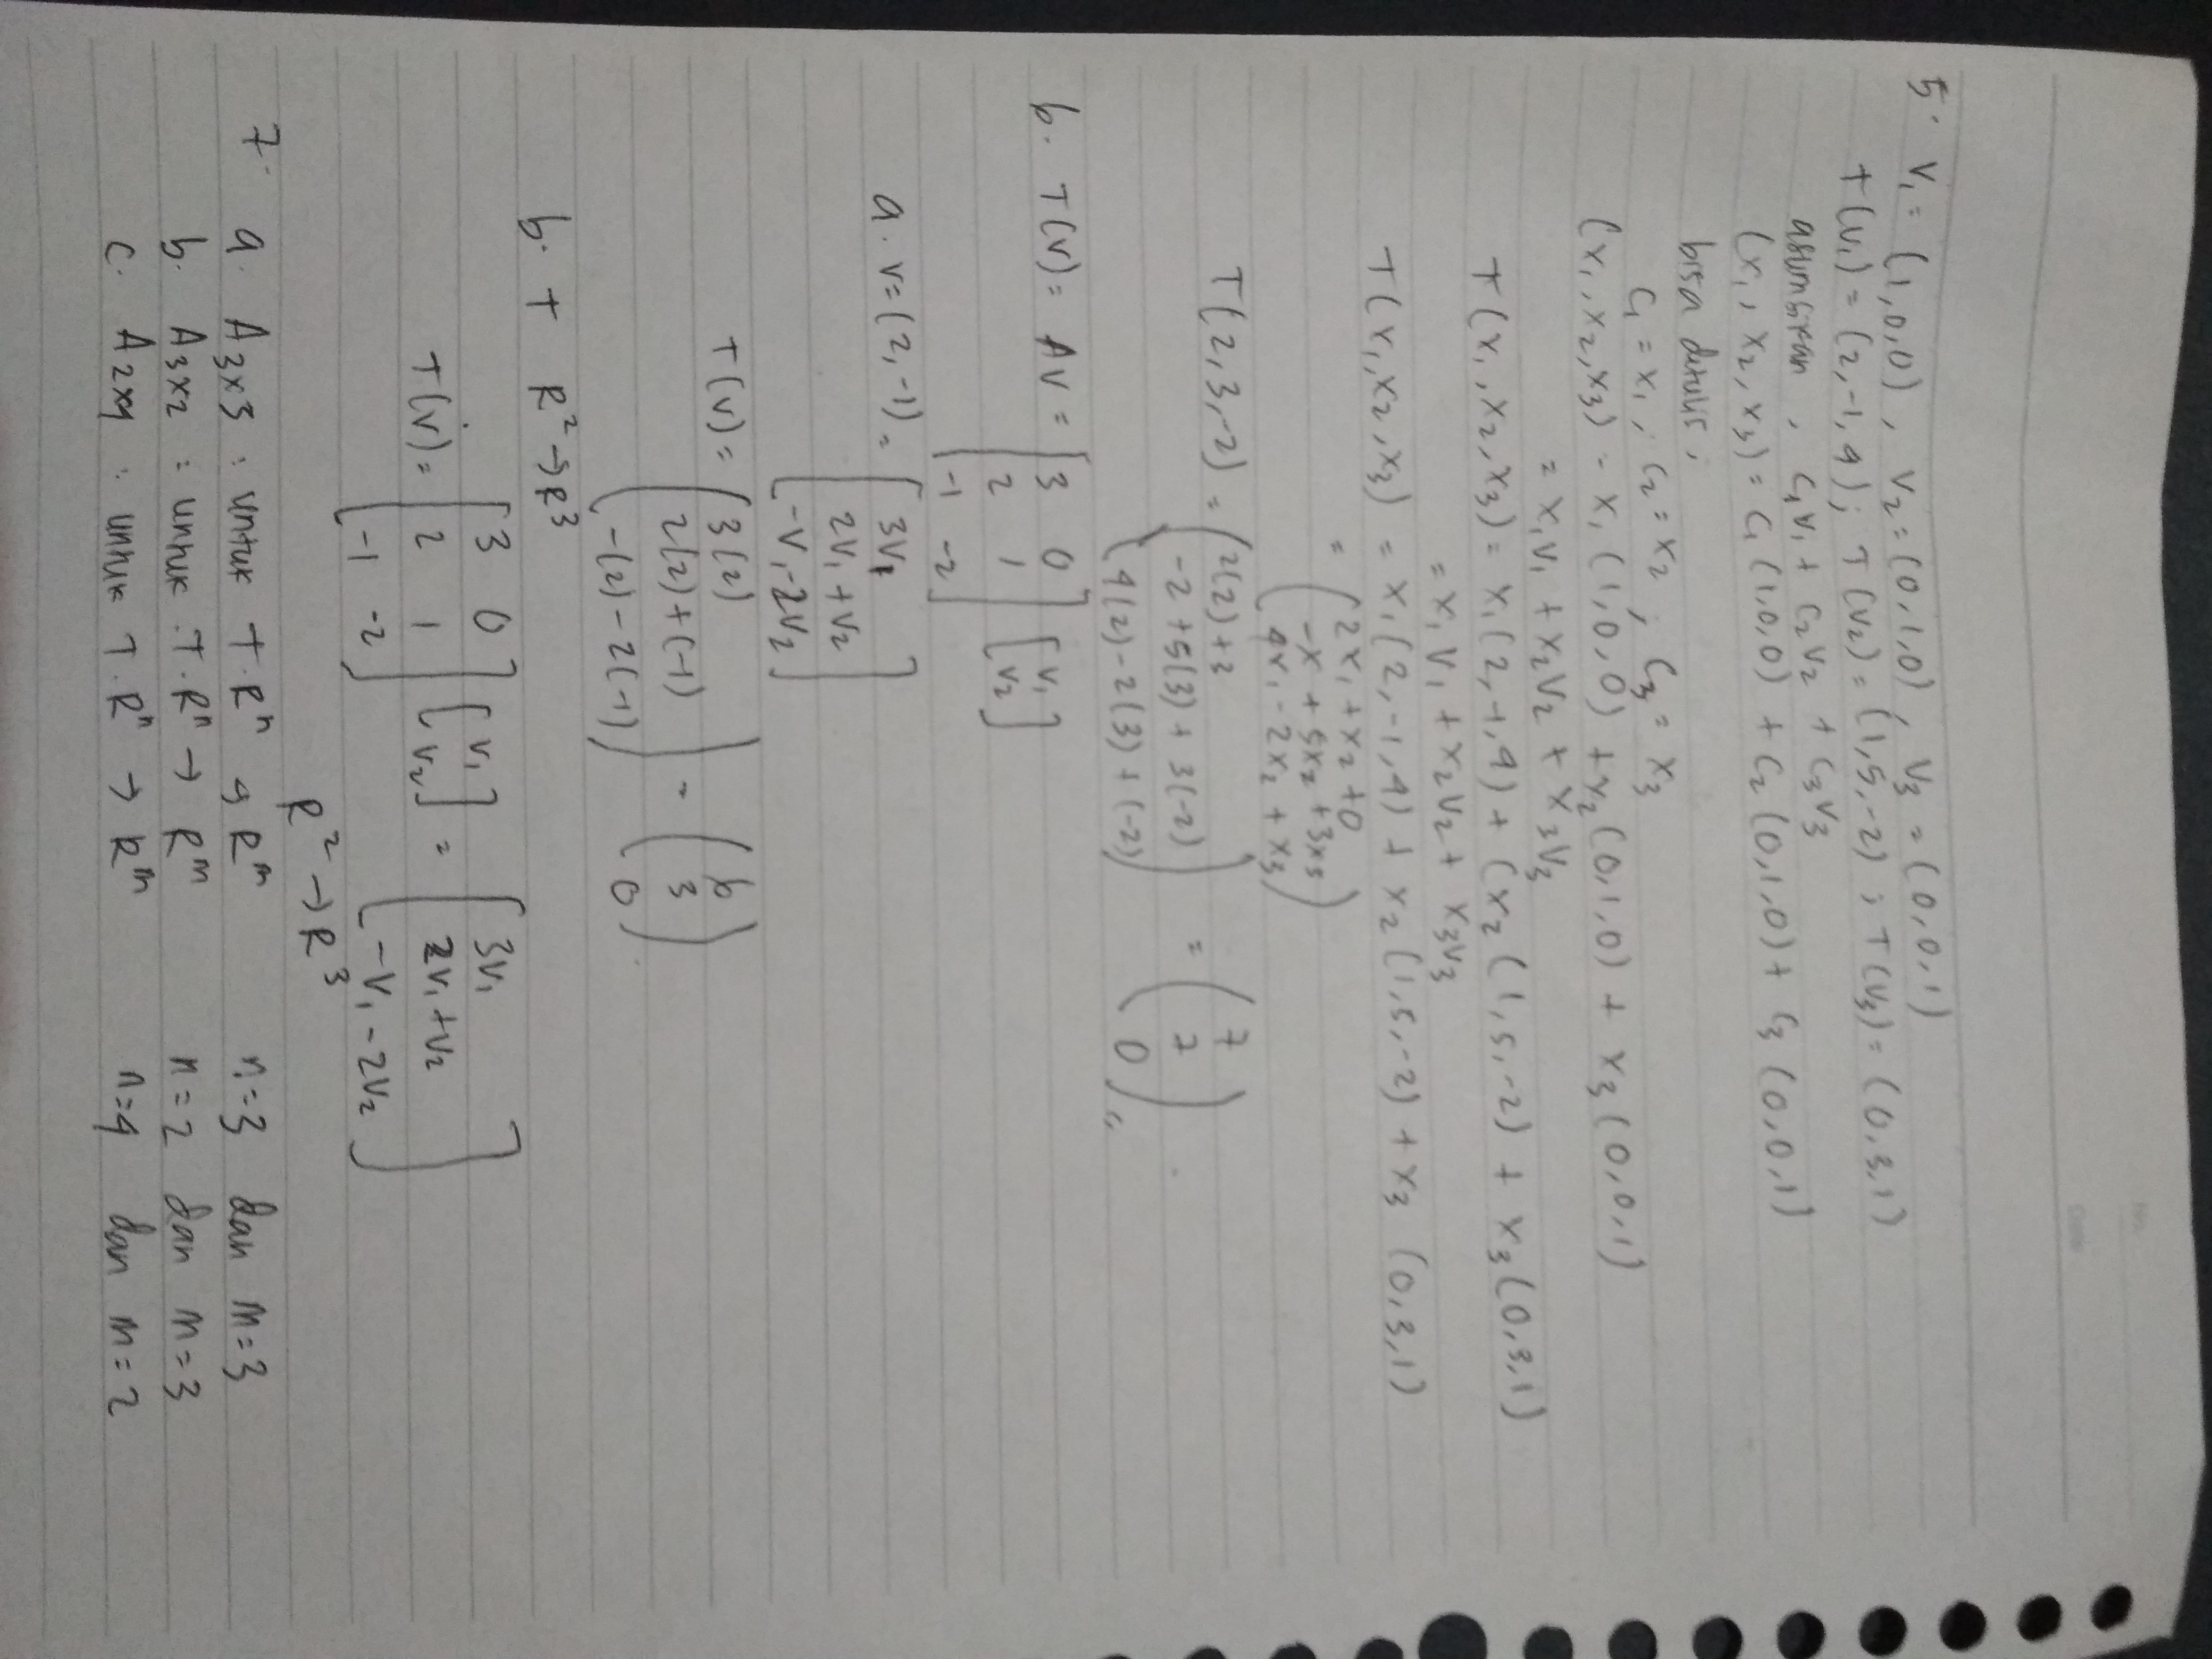 5. V₁ = (1,0,0), V₂ = (0,1,0), V₃ = (0,0,1)
T(V₁) = (2,-1,4); T(V₂) = (1,5,-2); T(V₃) = (0,3,1)
assumsikan, C₁V₁ + C₂V₂ + C₃V₃
(x₁, x₂, x₃) = C₁(1,0,0) + C₂(0,1,0) + C₃(0,0,1)
bisa ditulis;
C₁ = x₁; C₂ = x₂; C₃ = x₃
(x₁, x₂, x₃) - x₁(1,0,0) + x₂(0,1,0) + x₃(0,0,1)
= x₁V₁ + x₂V₂ + x₃V₃
T(x₁, x₂, x₃) = x₁(2,-1,4) + (x₂(1,5,-2) + x₃(0,3,1)
= x₁V₁ + x₂V₂ + x₃V₃
T(x₁, x₂, x₃) = x₁(2,-1,4) + x₂(1,5,-2) + x₃(0,3,1)
= (2x₁ + x₂ + 0
-x + 5x₂ + 3x₃
4x₁ - 2x₂ + x₃)
T(2,3,-2) = (2(2)+3
-2+5(3)+3(-2)
4(2)-2(3)+(-2)) = (7
7
0)
6. T(V) = AV = [3 0
2 1
-1 -2] [V₁
V₂]
a. V = (2,-1) = [3V₁
2V₁ + V₂
-V₁ - 2V₂]
T(V) = (3(2)
2(2)+(-1)
-(2)-2(-1)) = (6
3
0)
b. T R² → R³
T(V) = [3 0
2 1
-1 -2] [V₁
V₂] = [3V₁
2V₁ + V₂
-V₁ - 2V₂]
R² → R³
7. a. A₃ₓ₃ : untuk T. Rⁿ → Rᵐ n = 3 dan m = 3
b. A₃ₓ₂ : untuk T. Rⁿ → Rᵐ n = 2 dan m = 3
c. A₂ₓ₄ : untuk T. Rⁿ → Rᵐ n = 4 dan m = 2